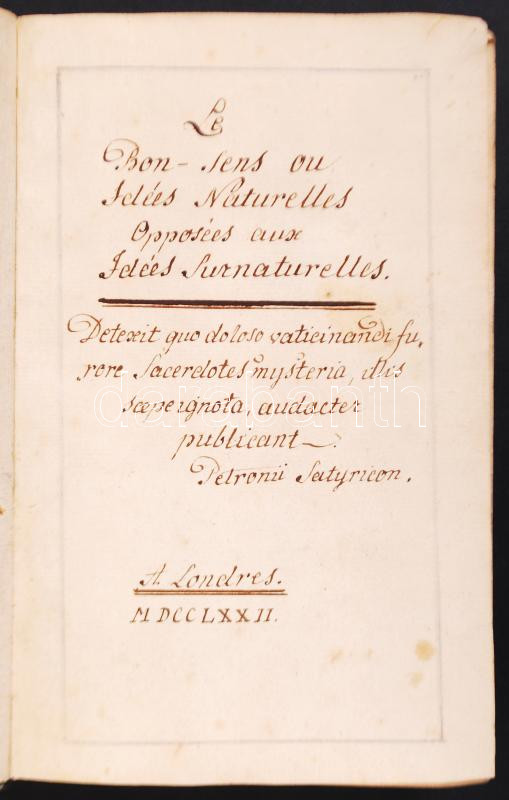 Le
Bon-sens ou
Idées Naturelles
Opposées aux
Idées Surnaturelles.
Detexit quo doloso vaticinandi fu-
rore Sacerdotes mysteria, illis
sæpe ignota, audacter
publicant.
Petronii Satyricon.
darabanth
A. Londres.
MDCCLXXII.